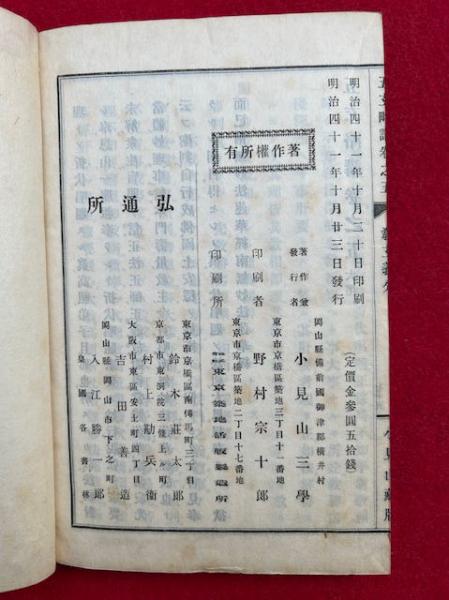 明治四十一年十月二十日印刷
明治四十一年十月廿三日發行
(定價金參圓五拾錢)
著作權所有
著作兼發行者
岡山縣備前國御津郡橫井村
小見山三學
東京市京橋區築地三丁目十一番地
印刷者
野村宗十郎
東京市京橋區築地二丁目十七番地
印刷所
東京築地活版製造所
弘通所
鈴木莊太郎
京都市東洞院三條上ル町
村上勘兵衞
大阪市東區安土町四丁目
吉田善造
岡山縣岡山市下之町
入江勝一郎